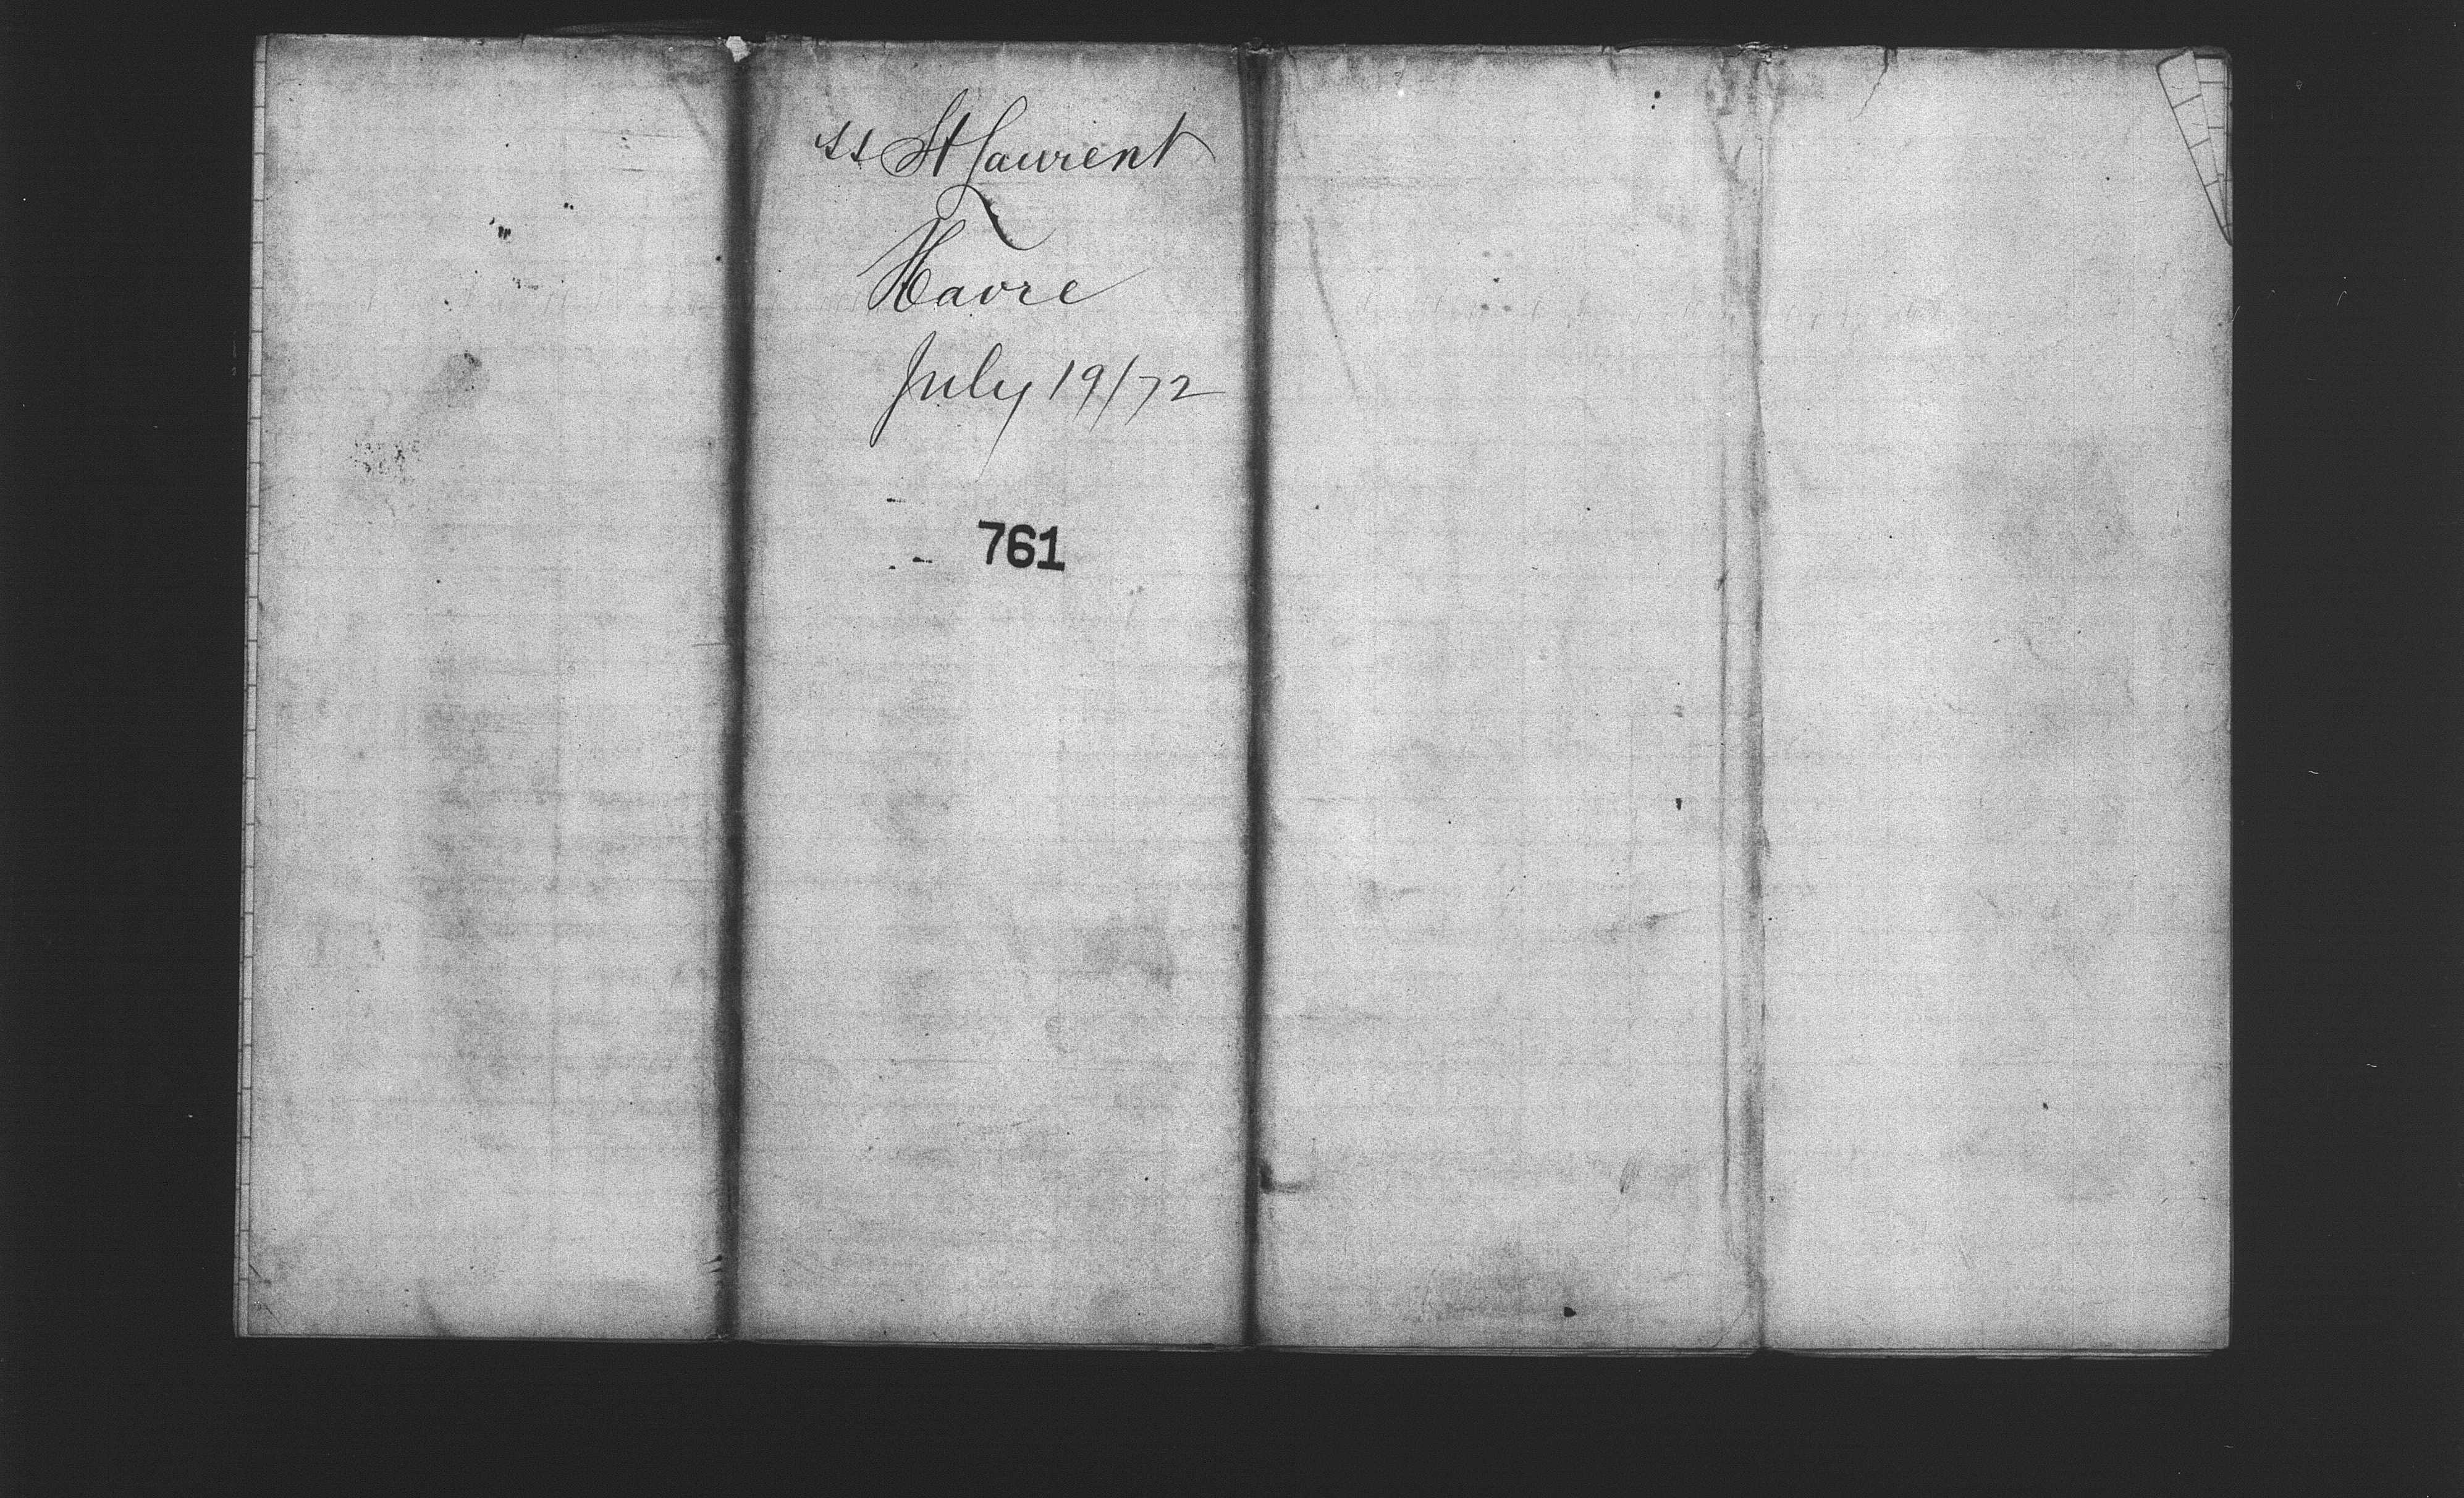 SS St Laurent
Havre
July 19/72
761